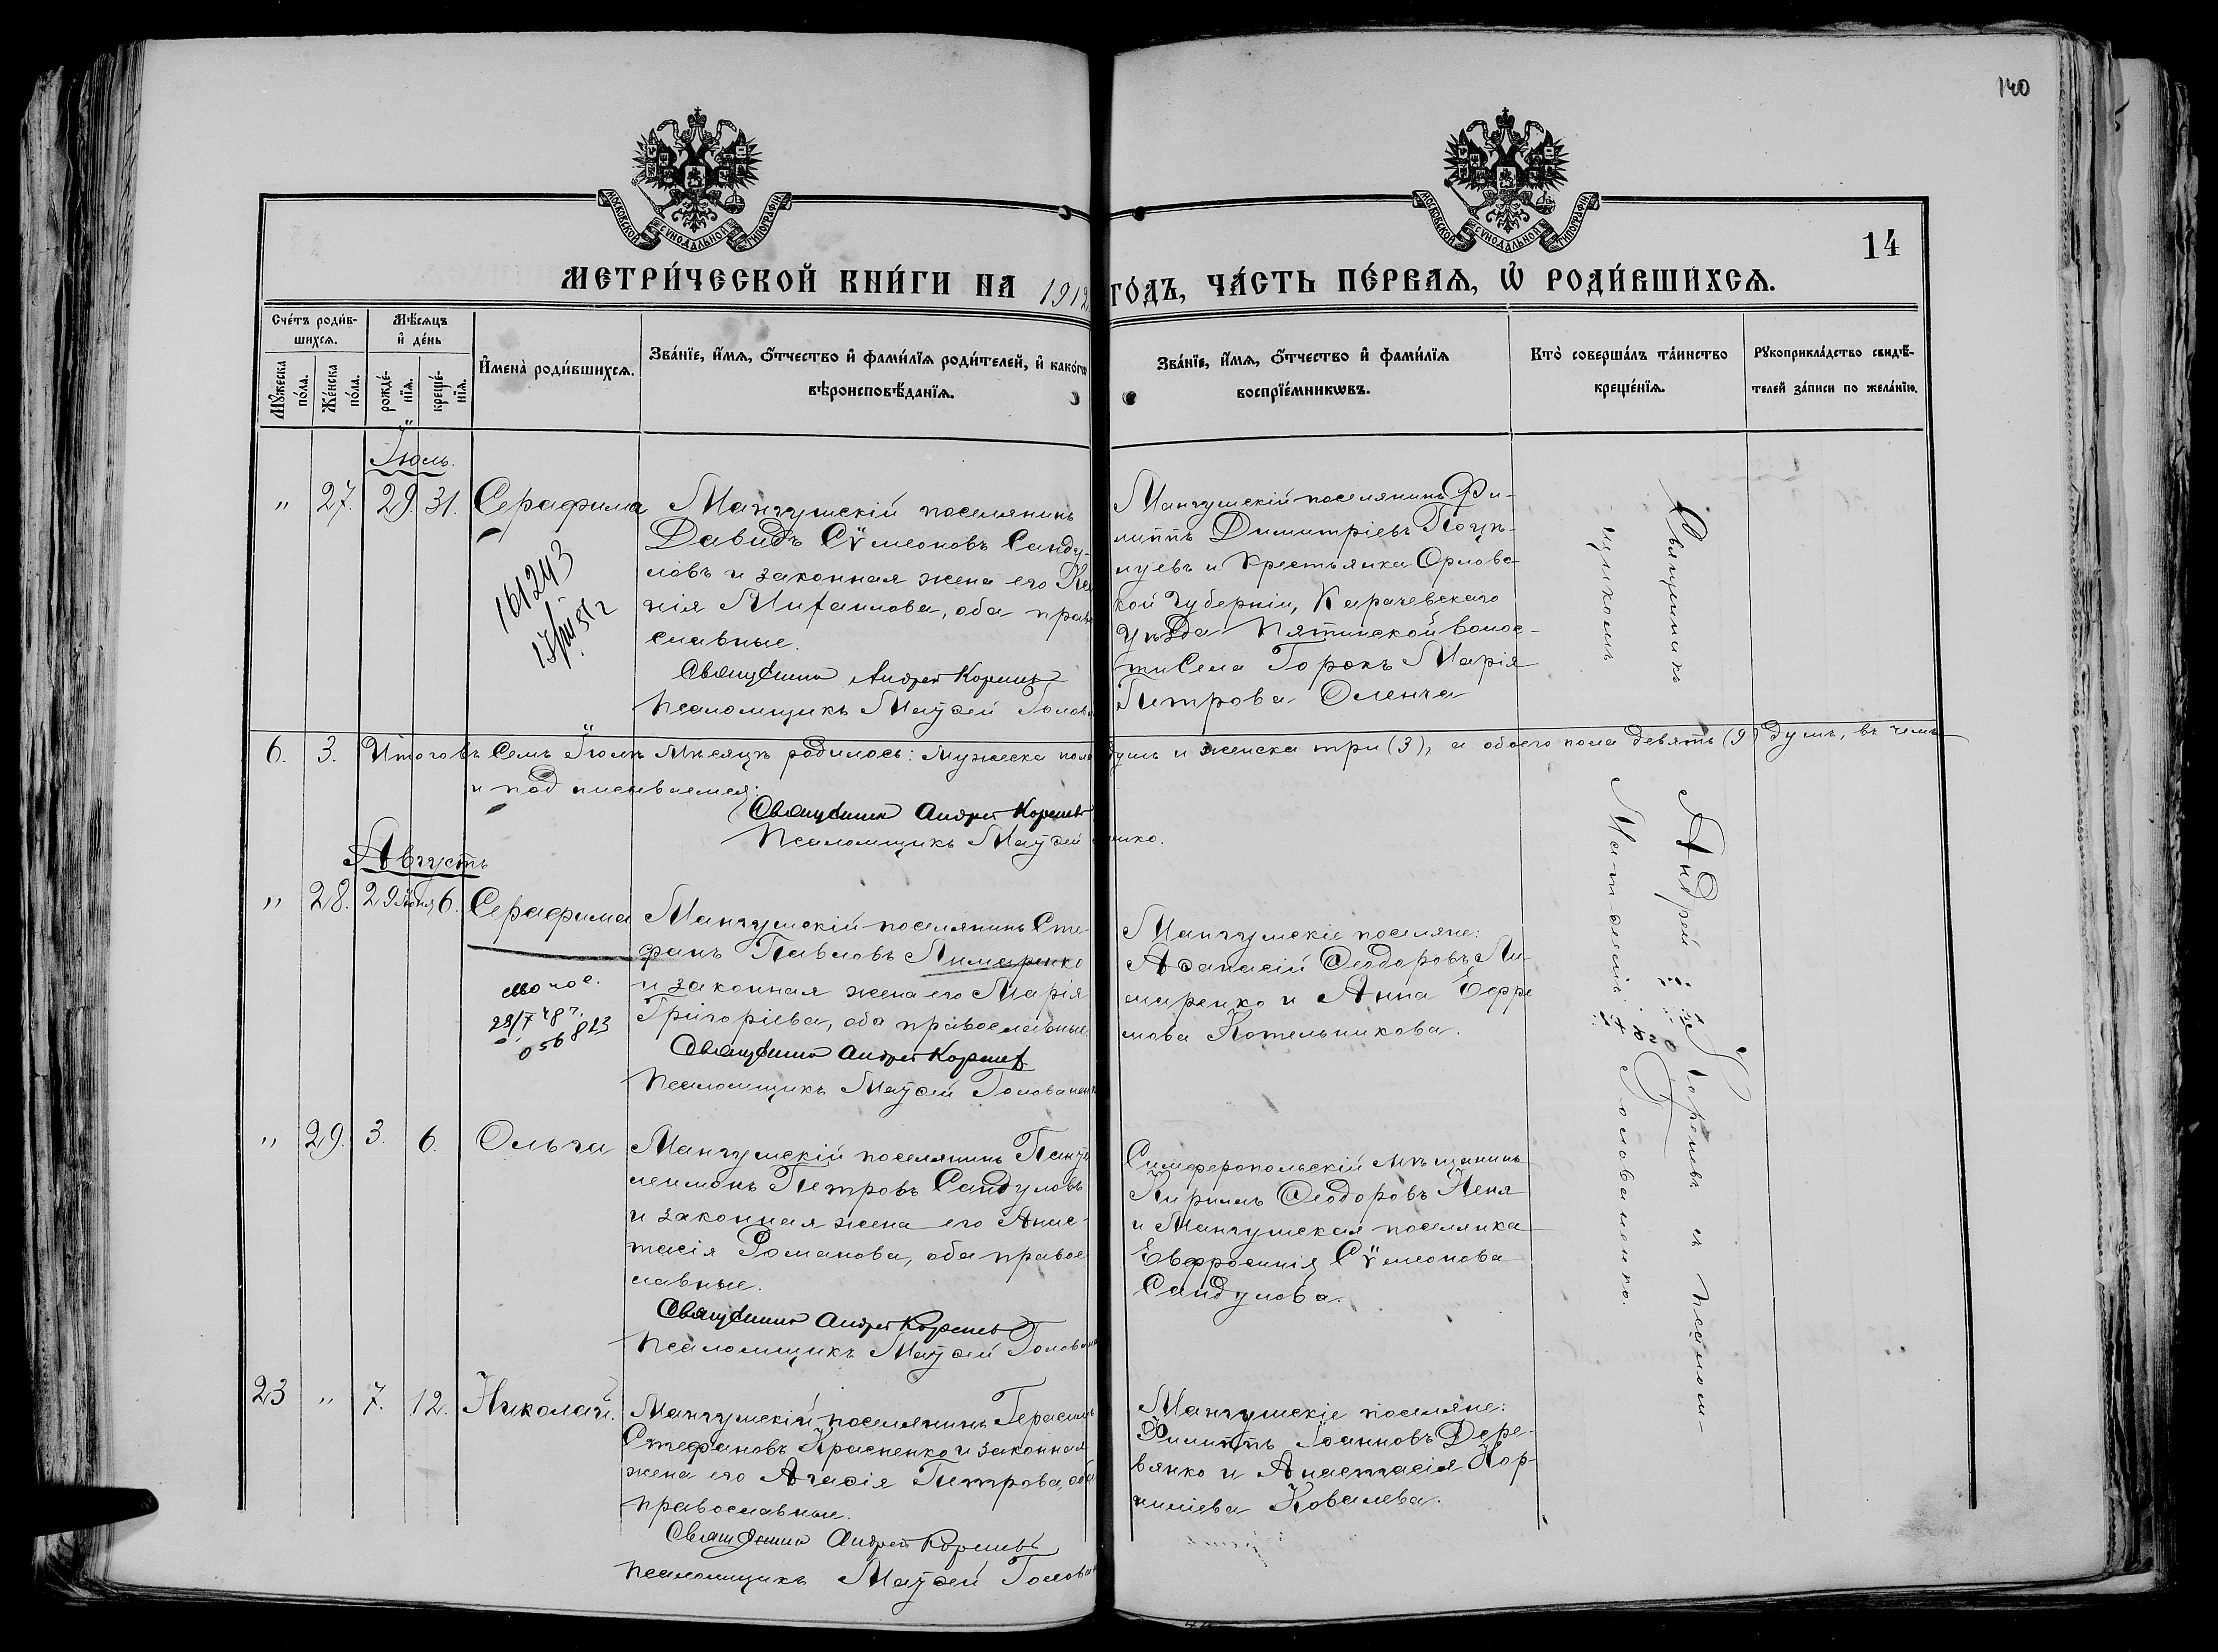 140
МОСКОВСКОЙ СѴНОДАЛЬНОЙ ТИПОГРАФІИ
МОСКОВСКОЙ СѴНОДАЛЬНОЙ ТИПОГРАФІИ
14
МЕТРИ́ЧЕСКОЙ КНИ́ГИ НА 1912
ГО́ДЪ, ЧА́СТЬ ПЕ́РВАѦ, Ѡ҆ РОДИ́ВШИХСѦ.
Сче́тъ роди́в-
шихсѧ.
Мꙋ́жеска
по́ла.
Же́нска
по́ла.
Мѣ́сѧцъ
и҆ де́нь
рожде́-
нїѧ.
креще́-
нїѧ.
И҆мена̀ роди́вшихсѧ.
Зва́нїе, и҆́мѧ, ѻ҆́тчество и҆ фами́лїѧ роди́телей, и҆ како́гѡ
вѣроисповѣ́данїѧ.
Зва́нїе, и҆́мѧ, ѻ҆́тчество и҆ фами́лїѧ
воспрїе́мникѡвъ.
Кто̀ соверша́лъ та́инство
креще́нїѧ.
Рꙋкоприкла́дство свидѣ́-
телей за́писи по жела́нїю.
Іюль.
" 27. 29. 31. Серафима
161243
Мангушскій поселянинъ
Давидъ Сѵмеоновъ Санду-
ловъ и законная жена его Ксе
нія Михаилова, оба прав
славные.
Священникъ Андрей Корнев
Псаломщикъ Матѳей Голов
Мангушскій поселянинъ Фи-
липпъ Димитріевъ
и крестьянка Орловс-
кой губерніи, Карачевскаго
уѣзда Пятинской волос-
ти Села Горокъ Марія
Петрова Оленча
6. 3. Итого въ семъ Іюлѣ мѣсяцѣ родилось: мужеска пола
душъ и женска три (3), а обоего пола девять (9) душъ, въ чемъ
и подписываемся:
Священникъ Андрей Корнев
Псаломщикъ Матѳей
нко.
Августъ
" 28. 29 Іюля 6. Серафима
29/7 48 г.
056813
Мангушскій поселянинъ Сте-
фанъ Павловъ Лимаренко
и законная жена его Марія
Григоріева, оба православные
Священникъ Андрей Корнев
Псаломщикъ Матѳей Голованенк
Мангушскіе поселяне:
Аѳанасій Ѳеодоровъ Ли-
маренко и Анна Ефре
мова Котельникова.
" 29. 3. 6. Ольга
Мангушскій поселянинъ Панте
леимонъ Петровъ Сандуловъ
и законная жена его Анас-
тасія Романова, оба правос
лавные.
Священникъ Андрей Корнев
Псаломщикъ Матѳей Голован
Симферопольскій мѣщанинъ
Кириллъ Ѳеодоровъ Кеня
и Мангушская поселянка
Евфросинія Сѵмеонова
Сандулова.
23 " 7. 12. Николай.
Мангушскій поселянинъ Герасимъ
Стефановъ Красненко и законная
жена его Агаѳія Петрова, оба
православные.
Священникъ Андрей Корнев
Псаломщикъ Матѳей Голован
Мангушскіе поселяне:
Филиппъ Іоанновъ Дере-
вянко и Анастасія Кор-
ниліева Ковалева.
Священникъ Андрей Корневъ съ псалом-
щикомъ Матѳеемъ Голованенко.